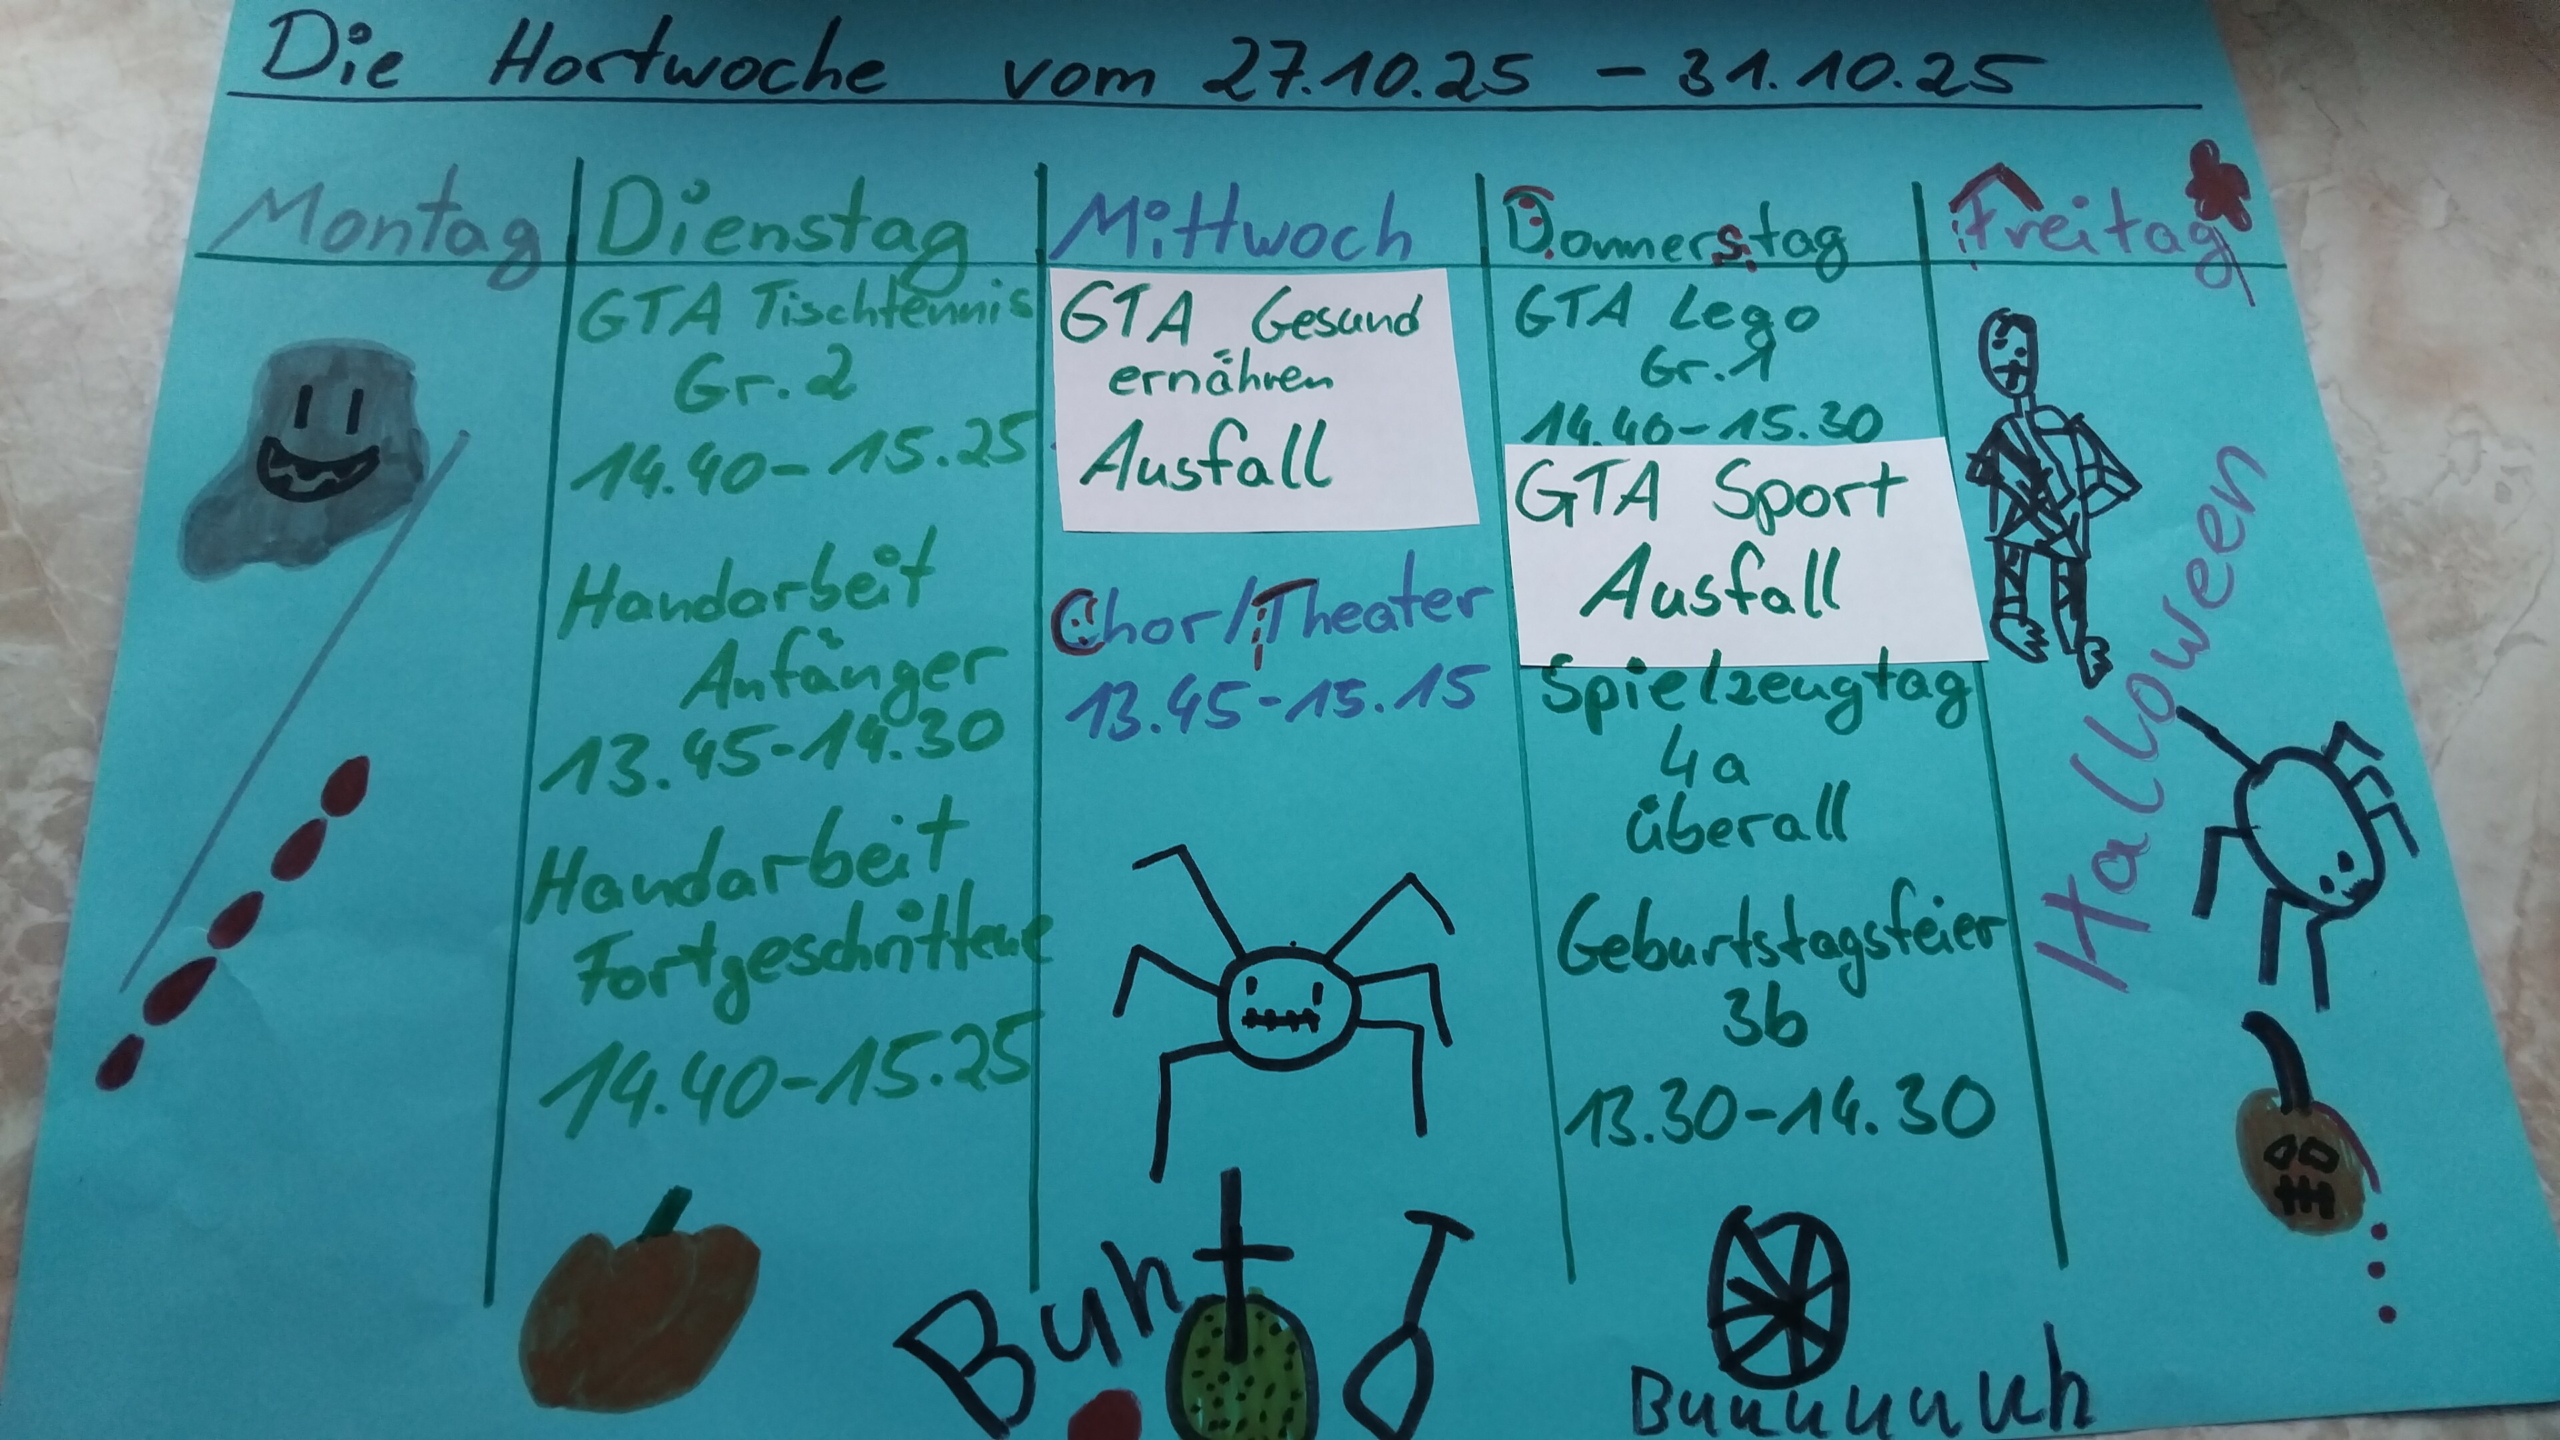 Die Hortwoche vom 27.10.25 - 31.10.25
Montag
Dienstag
GTA Tischtennis
Gr. 2
14.40-15.25
Handarbeit
Anfänger
13.45-14.30
Handarbeit
Fortgeschrittene
14.40-15.25
Mittwoch
GTA Gesund
ernähren
Ausfall
Chor/Theater
13.45-15.15
Buh
Donnerstag
GTA Lego
Gr. 1
14.40-15.30
GTA Sport
Ausfall
Spielzeugtag
4a
überall
Geburtstagsfeier
3b
13.30-14.30
Buuuuuuh
Freitag
Halloween